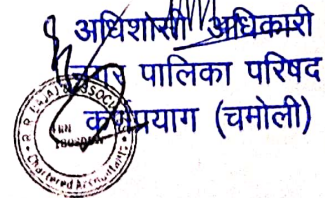 अधिशासी अधिकारी
नगर पालिका परिषद
कर्णप्रयाग (चमोली)
Chartered Accountant